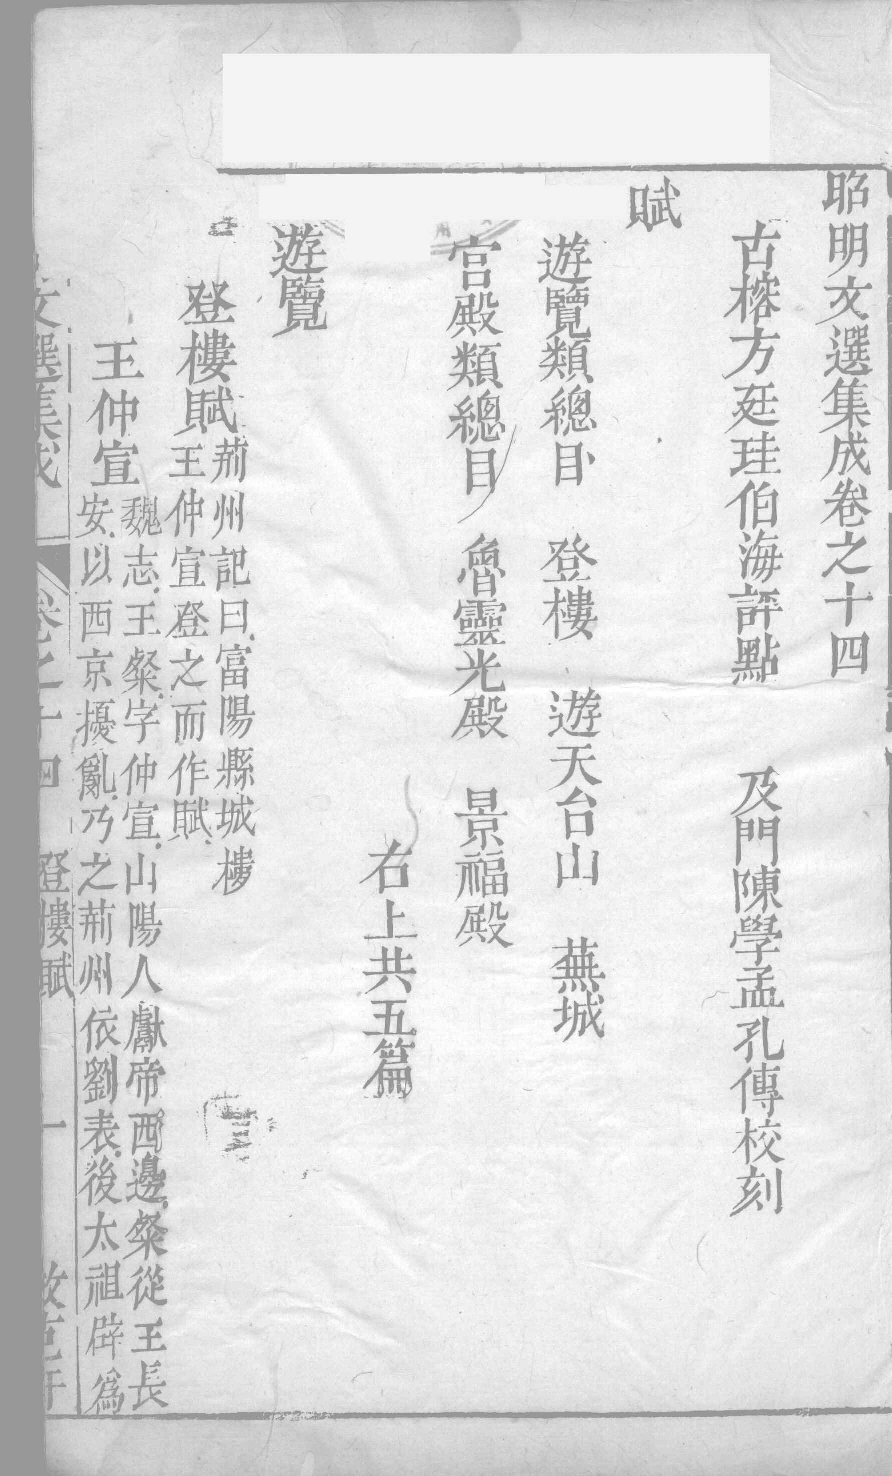 昭明文選集成卷之十四
古榕方廷珪伯海評點 及門陳學孟孔傳校刻
賦
遊覽類總目 登樓 遊天台山 蕪城
宮殿類總目 魯靈光殿 景福殿
右上共五篇
遊覽
登樓賦
荊州記曰富陽縣城樓
王仲宣登之而作賦
王仲宣
魏志王粲字仲宣山陽人獻帝西遷粲從至長
安以西京擾亂乃之荊州依劉表後太祖辟爲
文選集成 卷之十四 登樓賦 一